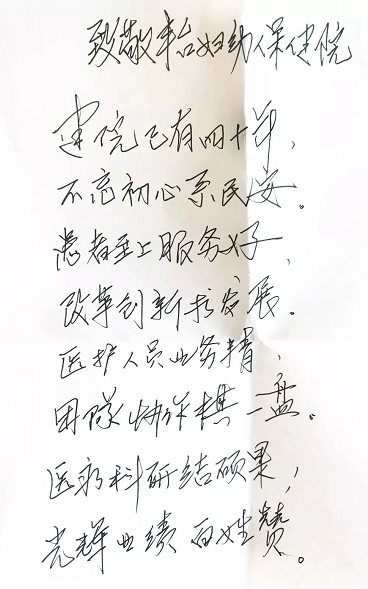 致敬丰台妇幼保健院
建院已有四十年，
不忘初心系民安。
患者至上服务好，
改革创新求发展。
医护人员业务精，
团队协作棋一盘。
医药科研结硕果，
光辉业绩百姓赞。